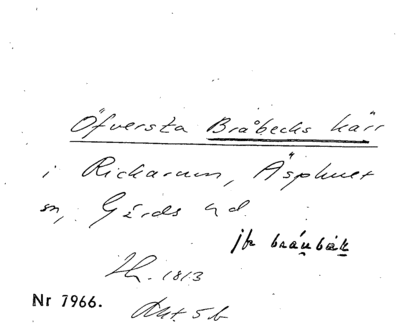 Öfversta Bråbecks kärr
i Rickarum, Äsphult
sn, Gärds hd
jfr bråubäk
Lh. 1813
Nr 7966.
Akt. 5b